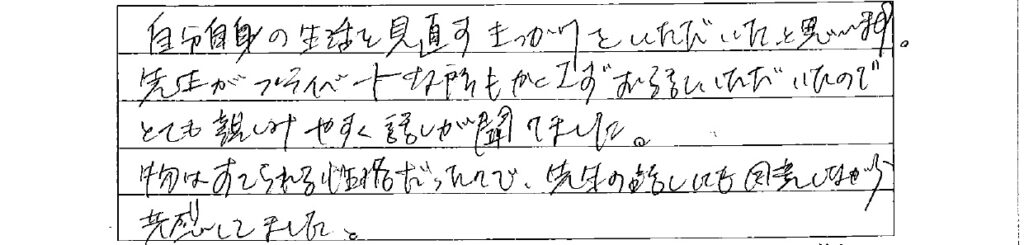 自分自身の生活を見直すきっかけをいただいたと思います。
先生がプライベートな所もかくさずお話しいただいたので
とても親しみやすく話しが聞てました。
物はすてられる性格だったので、先生の話しにも同意しながら
共感してました。